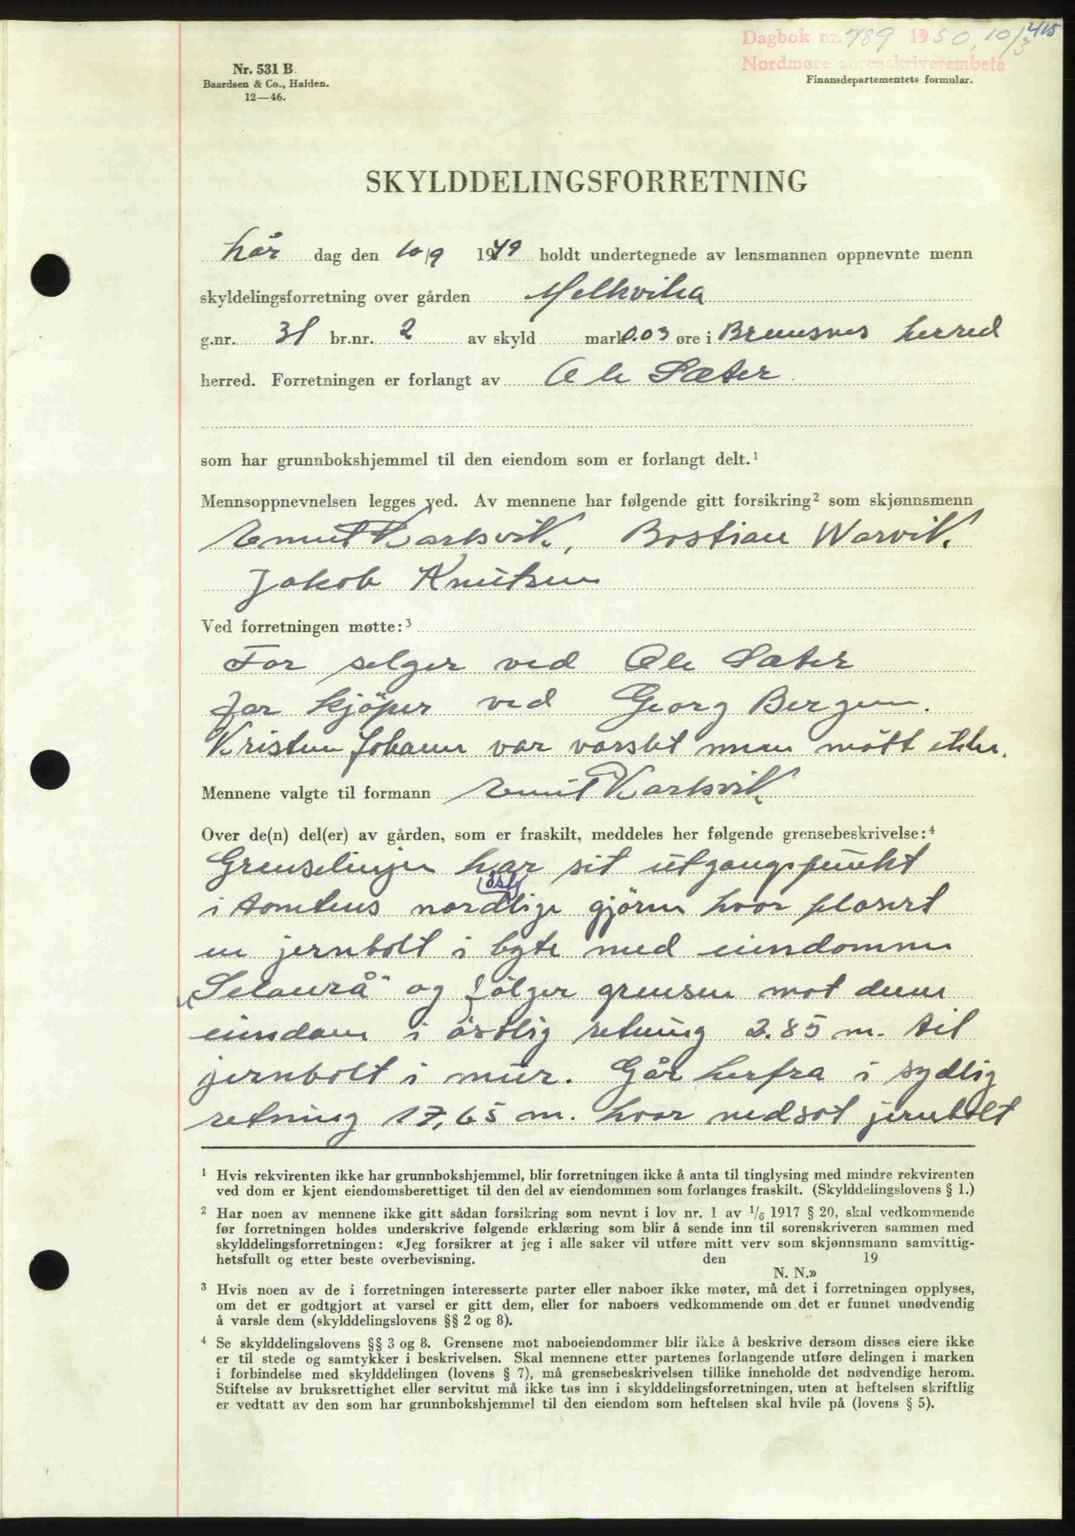 415
Dagbok nr. 789 1950, 10/3
Nordmøre sorenskriverembete
Nr. 531 B.
Baardsen & Co., Halden.
12—46.
Finansdepartementets formular.
SKYLDDELINGSFORRETNING
År dag den 10/9 1949 holdt undertegnede av lensmannen oppnevnte menn
skyldelingsforretning over gården Melkvika
g.nr. 31 br.nr. 2 av skyld mark 0.03 øre i Bremsnes herred
herred. Forretningen er forlangt av Ole Sæter
som har grunnbokshjemmel til den eiendom som er forlangt delt.¹
Mennsoppnevnelsen legges ved. Av mennene har følgende gitt forsikring² som skjønnsmenn
Emil Karlsvik, Bastian Warvik,
Jakob Knutsen
Ved forretningen møtte:³
For selger ved Ole Sæter
for kjöper ved Georg Bergem.
Kristen Johann var varslet men mött ikke.
Mennene valgte til formann Emil Karlsvik
Over de(n) del(er) av gården, som er fraskilt, meddeles her følgende grensebeskrivelse:⁴
Grenselinjen har sit utgangspunkt
i tomtens nordöstlige hjörne hvor plasert
en jernbolt i byte med eiendommen
og fölger grensen mot denne
eiendom i östlig retning 2.85 m. til
jernbolt i mur. Går herfra i sydlig
retning 17,65 m. hvor nedsat jernbolt
¹ Hvis rekvirenten ikke har grunnbokshjemmel, blir forretningen ikke å anta til tinglysing med mindre rekvirenten
ved dom er kjent eiendomsberettiget til den del av eiendommen som forlanges fraskilt. (Skylddelingslovens § 1.)
² Har noen av mennene ikke gitt sådan forsikring som nevnt i lov nr. 1 av ¹/₆ 1917 § 20, skal vedkommende
før forretningen holdes underskrive følgende erklæring som blir å sende inn til sorenskriveren sammen med
skylddelingsforretningen: «Jeg forsikrer at jeg i alle saker vil utføre mitt verv som skjønnsmann samvittig-
hetsfullt og etter beste overbevisning. den 19
N. N.»
³ Hvis noen av de i forretningen interesserte parter eller naboer ikke møter, må det i forretningen opplyses,
om det er godtgjort at varsel er gitt dem, eller for naboers vedkommende om det er funnet unødvendig
å varsle dem (skylddelingslovens §§ 2 og 8).
⁴ Se skylddelingslovens §§ 3 og 8. Grensene mot naboeiendommer blir ikke å beskrive dersom disses eiere ikke
er til stede og samtykker i beskrivelsen. Skal mennene etter partenes forlangende utføre delingen i marken
i forbindelse med skylddelingen (lovens § 7), må grensebeskrivelsen tillike inneholde det nødvendige herom.
Stiftelse av bruksrettighet eller servitut må ikke tas inn i skylddelingsforretningen, uten at heftelsen skriftlig
er vedtatt av den som har grunnbokshjemmel til den eiendom som heftelsen skal hvile på (lovens § 5).